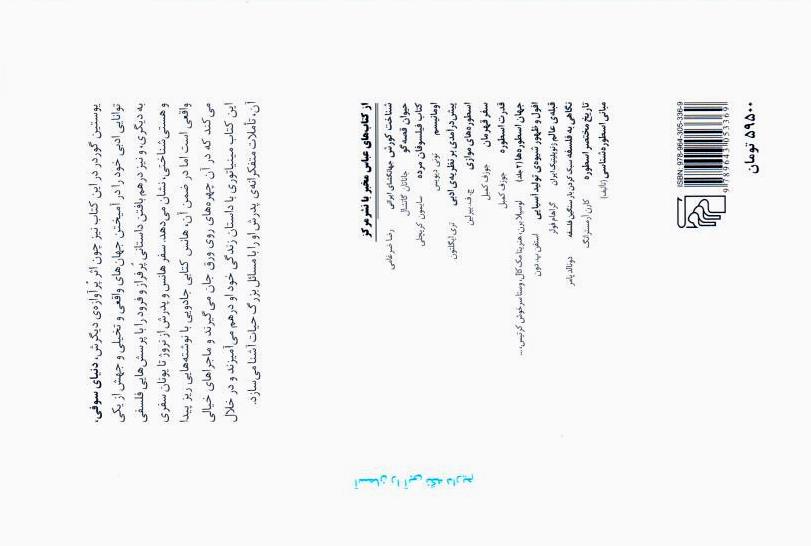 یوستین گوردر در این کتاب نیز چون اثر پُرآوازه‌ی دیگرش، دنیای سوفی،
توانایی ادبی خود را در آمیختن جهان‌های واقعی و تخیلی و جهش از یکی
به دیگری، و نیز درهم بافتن داستانی پُرفراز و فرود را با پرسش‌هایی فلسفی
و هستی‌شناختی، نشان می‌دهد. سفر هانس و پدرش از نروژ تا یونان سفری
واقعی است اما در ضمن آن، هانس کتابی جادویی با نوشته‌هایی ریز پیدا
می‌کند که در آن چهره‌های روی ورق جان می‌گیرند و ماجراهای خیالی
این کتاب مینیاتوری با داستان زندگی خود او درهم می‌آمیزند و در خلال
آن، تأملات متفکرانه‌ی پدرش او را با مسائل بزرگ حیات آشنا می‌سازد.
از کتاب‌های عباس مخبر با نشرمرکز
شناخت کورش جهانگشای ایرانی رضا ضرغامی
حیوان قصه‌گو جاناتان گاتشال
کتاب فیلسوفان مرده سایمون کریچلی
اومانیسم تونی دیویس
پیش‌درآمدی بر نظریه‌ی ادبی تری ایگلتون
اسطوره‌های موازی ج.ف. بیرلین
سفر قهرمان جوزف کمبل
قدرت اسطوره جوزف کمبل
جهان اسطوره‌ها (۲ جلد) لوسیلا برن، هنریتا مک‌کال، وستا سرخوش کرتیس، ...
افول و ظهور شیوه‌ی تولید آسیایی استفن پ. دون
قبله‌ی عالم ژئوپلیتیک ایران گراهام فولر
نگاهی به فلسفه سبک کردن بار سنگین فلسفه دونالد پامر
تاریخ مختصر اسطوره کارن آرمسترانگ
مبانی اسطوره‌شناسی (تألیف)
ISBN: 978-964-305-336-9
9789643053369
۵۹۵۰۰ تومان
آسمان را آبی نگه داریم